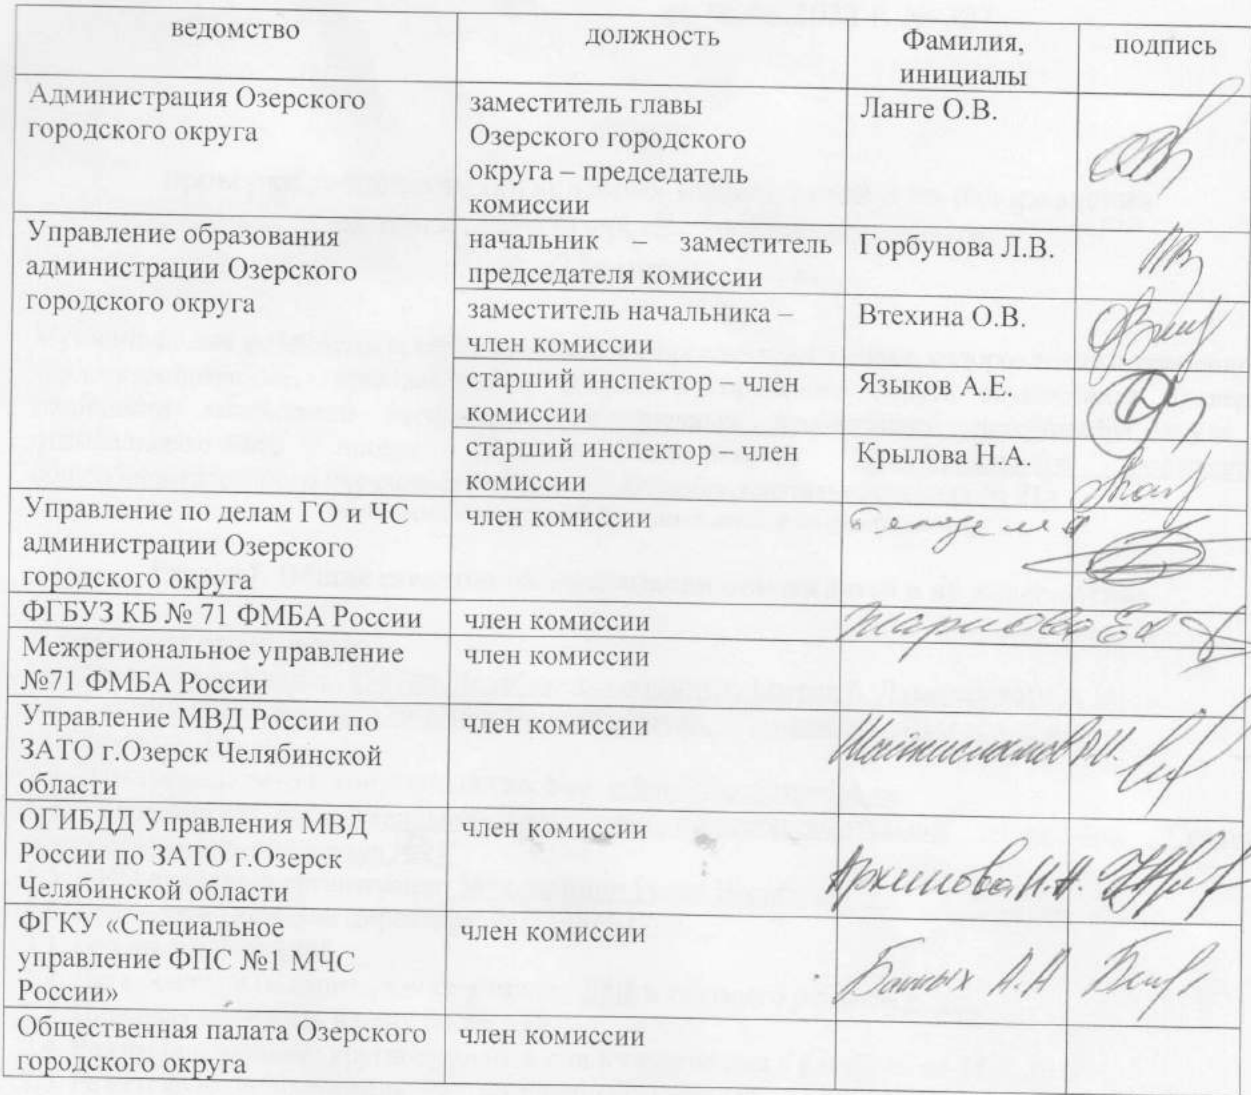 ведомство
должность
Фамилия,
инициалы
подпись
Администрация Озерского
городского округа
заместитель главы
Озерского городского
округа – председатель
комиссии
Ланге О.В.
Управление образования
администрации Озерского
городского округа
начальник – заместитель
председателя комиссии
Горбунова Л.В.
заместитель начальника –
член комиссии
Втехина О.В.
старший инспектор – член
комиссии
Языков А.Е.
старший инспектор – член
комиссии
Крылова Н.А.
Управление по делам ГО и ЧС
администрации Озерского
городского округа
член комиссии
ФГБУЗ КБ № 71 ФМБА России
член комиссии
Межрегиональное управление
№71 ФМБА России
член комиссии
Управление МВД России по
ЗАТО г.Озерск Челябинской
области
член комиссии
ОГИБДД Управления МВД
России по ЗАТО г.Озерск
Челябинской области
член комиссии
ФГКУ «Специальное
управление ФПС №1 МЧС
России»
член комиссии
Общественная палата Озерского
городского округа
член комиссии